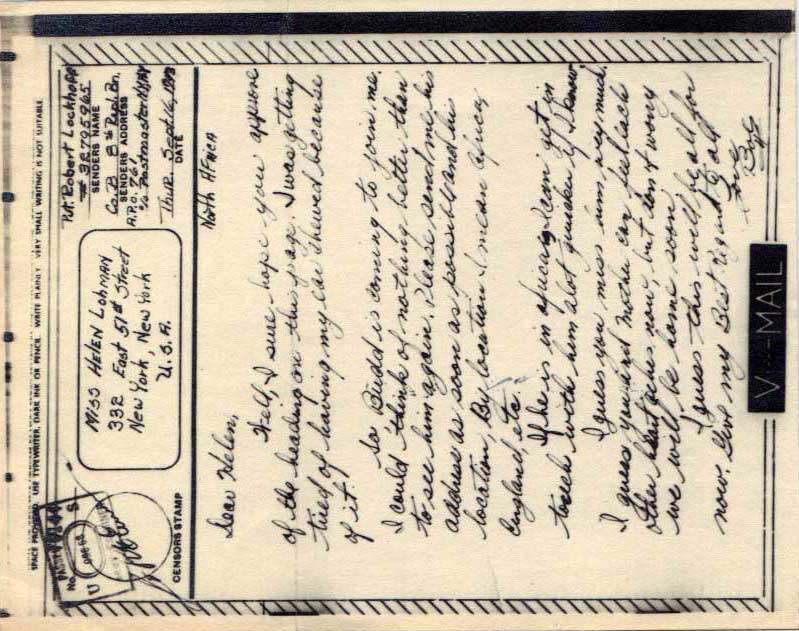 SPACE PROVIDED. USE TYPEWRITER, DARK INK OR PENCIL. WRITE PLAINLY. VERY SMALL WRITING IS NOT SUITABLE
PASSED BY
No.
U S
CENSORS STAMP
MISS HELEN LOHMAN
332 East 51st Street
New York, New York
U.S.A.
Pvt. Robert Lockhoff
# 32795965
SENDERS NAME
Co. B 8th Repl. Bn.
SENDERS ADDRESS
A.P.O. 761,
c/o Postmaster NY, NY
Thur. Sept. 16, 1943
DATE
North Africa
Dear Helen,
Well, I sure hope you approve
of the heading on this page. I was getting
tired of having my ear chewed because
of it.
So Budd is coming to join me.
I could think of nothing better than
to see him again. Please send me his
address as soon as possible and his
location, By location I mean africa,
England, etc.
If he is in africa, I can get in
touch with him alot quicker if I know.
I guess you miss him very much.
I guess you and mother can feel each
other heart aches now, but don't worry
we will be home soon.
I guess this will be all for
now. Give my Best Regards to all
Love
Bob
V···—MAIL